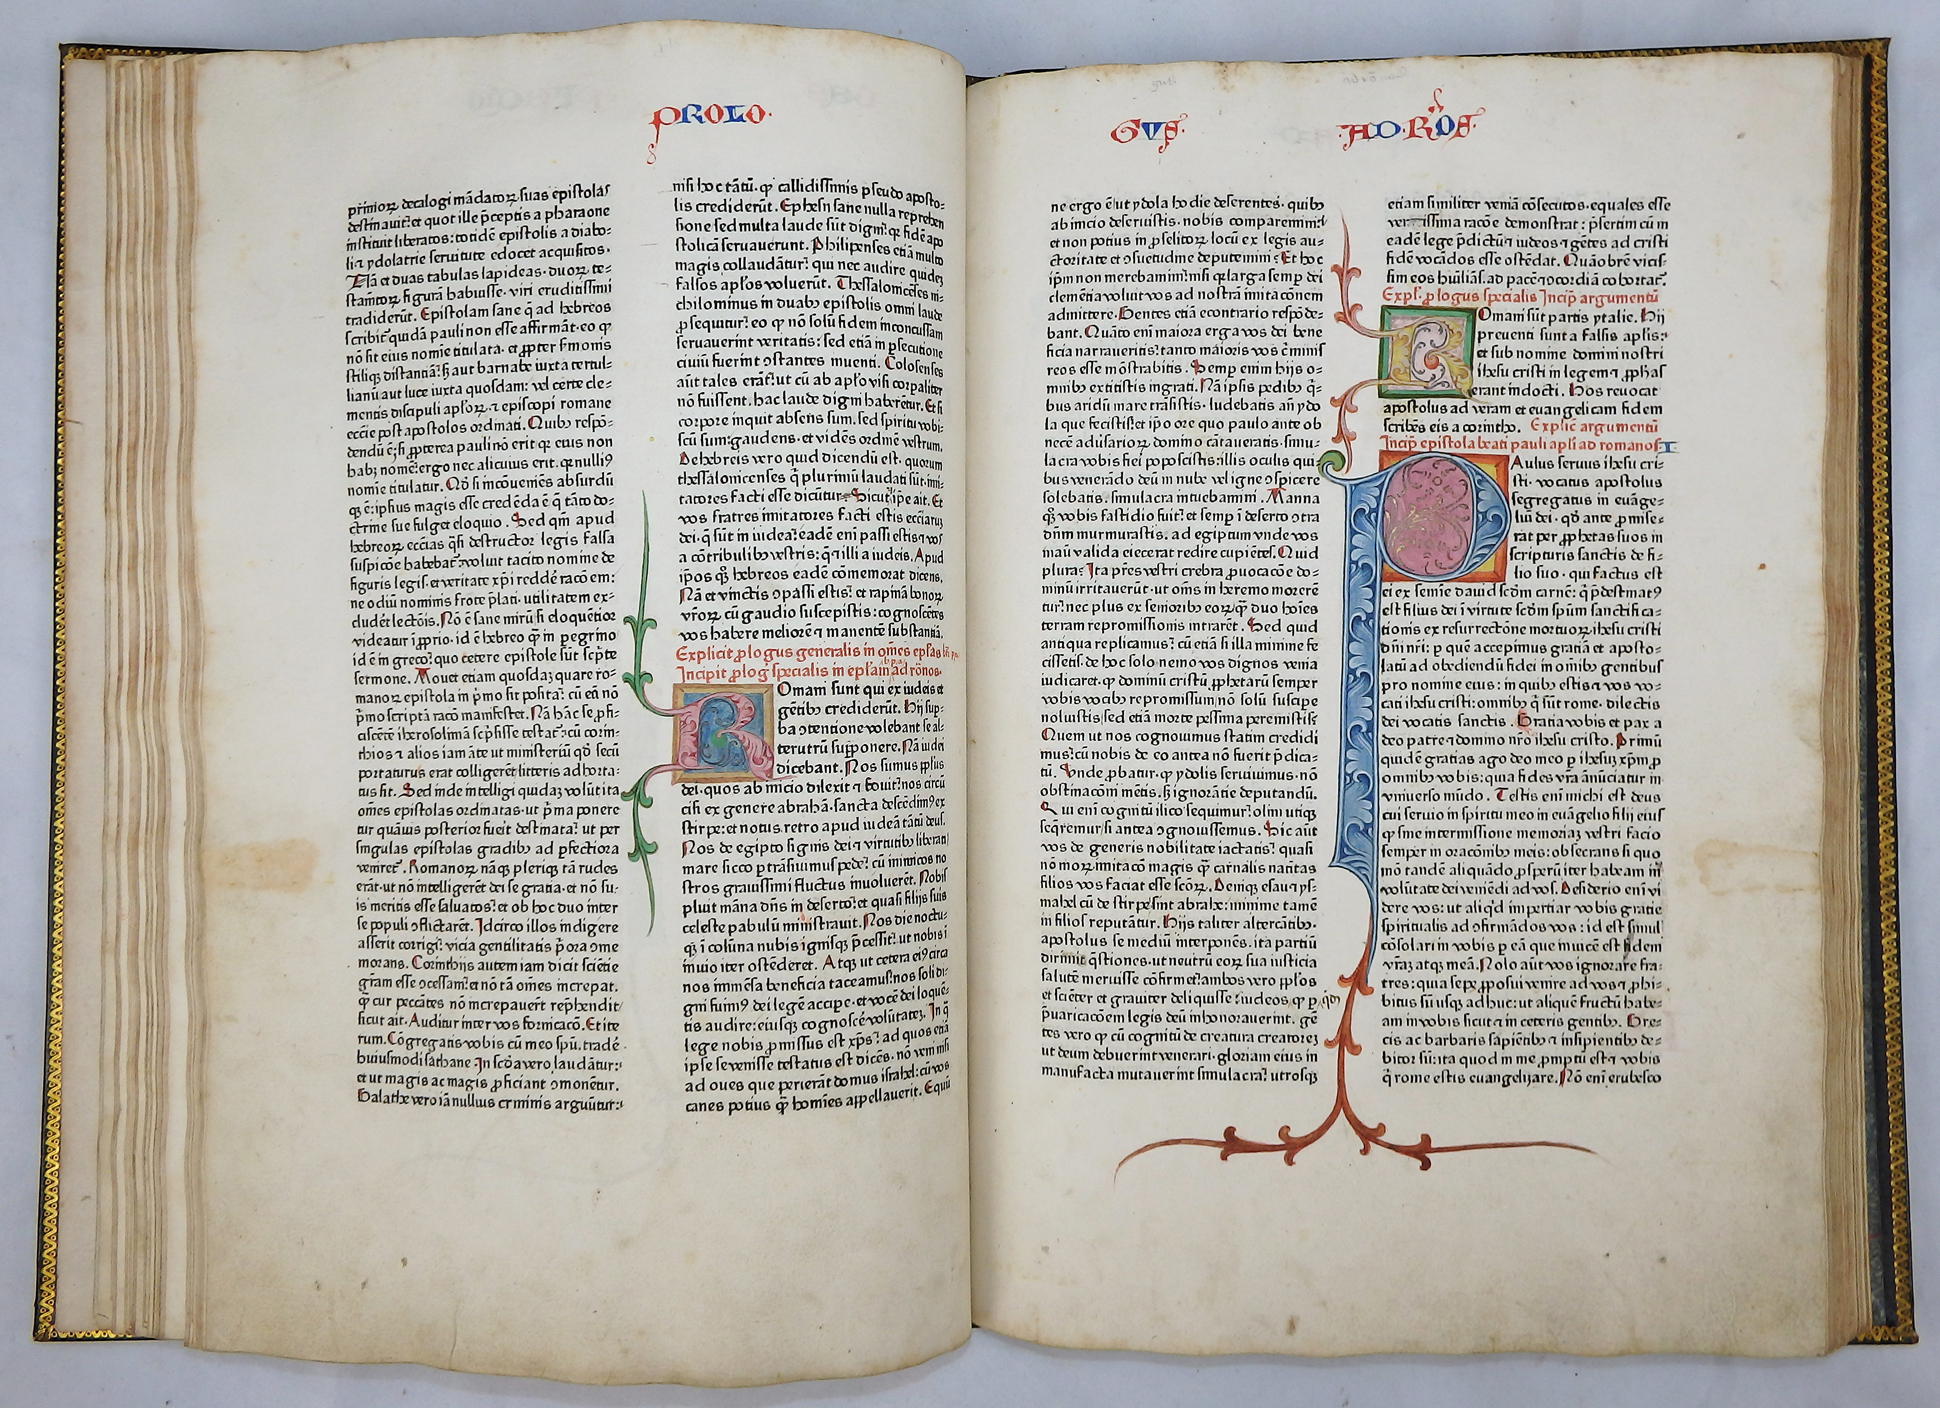 PROLO·
p̄rmioꝝ decalogi mādatoꝝ suas epistolas
destinauit: et quot ille p̄ceptis a pharaone
instituit liberatos: totidē epistolis a diabo-
li ⁊ ydolatrie seruitute edocet acquisitos.
Nā et duas tabulas lapideas · duoꝝ te-
stamētoꝝ figurā habuisse · viri eruditissimi
tradiderūt. Epistolam sane q̄ ad hebreos
scribit᷑ quidā pauli non esse affirmāt · eo ꝙ
nō sit eius nomīe titulata · et ꝓpter sermonis
stiliqꝫ distantiā: ꝫ aut barnabe iuxta tertul-
lianū aut luce iuxta quosdam: vel certe cle-
mentis discipuli apl̄oꝝ · ⁊ episcopi romane
eccl̄ie post apostolos ordinati. Quibꝰ respō-
dendū ē: si ꝓpterea pauli nō erit qꝛ eius non
habꝫ nomē: ergo nec alicuius erit · qꝛ nulliꝰ
nomīe titulatur. Qd̓ si inconueniēs absurdū
qꝫ ē: ipsius magis esse credēda ē q̄ tāto do-
ctrine sue fulget eloquio . Sed qm̄ apud
hebreoꝝ eccl̄ias q̄si destructor legis falsa
suspicōe habebat᷑: voluit tacito nomine de
figuris legis · et veritate xp̄i reddē racōem:
ne odiū nominis frōte p̄lati · utilitatem ex-
cludēt lectōis. Nō ē sane mirū si eloquētior
videatur ī ꝓprio · id ē hebreo q̄ȝ in pegrino
id ē in greco: quo cetere epistole sūt sc̄pte
sermone. Mouet etiam quosdaȝ quare ro-
manoꝝ epistola in p̄mo sit posita: cū eā nō
p̄mo scriptā racō manifestet. Nā hāc se ꝓfi-
ciscētē iherosolimā sc̄psisse testat᷑: cū corin-
thios ⁊ alios iam āte ut ministeriū qd̓ secū
portaturus erat colligerēt: litteris adhorta-
tus sit. Sed inde intelligi quidaȝ volūt ita
om̄es epistolas ordinatas · ut p̄ma ponere
tur quāuis posterior fueit destinata: ut per
singulas epistolas gradibꝰ ad ꝑfectiora
veniret᷑. Romanoꝝ nāqꝫ pleriqꝫ tā rudes
erāt · ut nō intelligerēt dei se gratia · et nō su-
is meritis esse saluatos: et ob hoc duo inter
se populi ꝯflictarēt. Idcirco illos indigere
asserit corrigi: vicia gentilitatis p̄ora ꝯme
morans. Corinthijs autem iam dicit sciētie
gram esse ꝯcessam: et nō tā om̄es increpat.
q̄ȝ cur peccātes nō increpauerīt rep̄hendit:
sicut ait. Auditur inter vos fornicacō. Et ite
rum. Cōgregatis vobis cū meo sp̄u. tradē
huiusmodi sathane. In scd̄a vero laudātur:
et ut magis ac magis ꝓficiant ꝯmonētur.
Galathe vero iā nullius criminis arguūtur:
nisi hoc tātū · ꝙ callidissimis pseudo aposto-
lis crediderūt. Ephesij sane nulla reprehen
sione sed multa laude sūt digni: qꝛ fidē apo
stolicā seruauerunt. Philipenses etiā multo
magis collaudātur: qui nec audire quideȝ
falsos apl̄os voluerūt. Thessalonicēses ni-
chilominus in duabꝰ epistolis omni laude
ꝓsequitur: eo ꝙ nō solū fidem inconcussam
seruauerint veritatis: sed etiā in ꝑsecutione
ciuiū fuerint ꝯstantes inuenti. Colosenses
aūt tales erāt: ut cū ab apl̄o visi corpaliter
nō fuissent. hac laude digni haberētur. Et si
corpore inquit absens sum. sed spiritu vobi-
scū sum: gaudens · et vidēs ordinē vestrum.
De hebreis vero quid dicendū est. quorum
thessalonicenses q̄ plurimū laudati sūt · imi-
tatores facti esse dicūtur. Sicut ip̄e ait. Et
vos fratres imitatores facti estis eccl̄iaruȝ
dei · q̄ sūt in iudea: eadē enī passi estis ⁊ vos
a cōtribulibꝰ vestris: q̄ ⁊ illi a iudeis. Apud
ip̄os qꝫ hebreos eadē cōmemorat dicens.
Nā et vinctis ꝯpassi estis: et rapinā bonoꝝ
vr̄oꝝ cū gaudio suscepistis: cognoscētes
vos habere meliorē ⁊ manentē substantiā.
Explicit ꝓlogus generalis in om̄es ep̄l̄as
Incipit ꝓlogꝰ specialis in ep̄l̄am ad rōnos.
Romani sunt qui ex iudeis et
gētibꝰ crediderūt. Hij sup-
ba ꝯtentione volebant se al-
terutrū supponere. Nā iudei
dicebant. Nos sumus ppl̄us
dei. quos ab inicio dilexit ⁊ fouit: nos circū
cisi ex genere abrahā. sancta descēdimꝰ ex
stirpe: et notus retro apud iudeā tātū deus.
Nos de egipto signis dei ⁊ virtutibꝰ liberati
mare sicco ptrāsiuimus pede: cū inimicos no
stros grauissimi fluctus inuoluerēt. Nobis
pluit māna dn̄s in deserto: et quasi filijs suis
celeste pabulū ministrauit. Nos die noctu-
qꝫ ī colūna nubis ignisqꝫ p̄cessit: ut nobis ī
inuio iter ostēderet. Atqꝫ ut cetera eiꝰ circa
nos immēsa beneficia taceamus: nos soli di-
gni fuimꝰ dei legē accipe · et vocē dei loquē-
tis audire: eiusqꝫ cognoscē volūtateȝ. In q̄
lege nobis ꝓmissus est xp̄s: ad quos etiā
ipse se venisse testatus est dicēs. nō veni nisi
ad oues que perierāt domus israhel: cū vos
canes potius q̄ȝ homīes appellauerit. Equū
GVS· ·AD·ROS·
ne ergo ē: ut ydola hodie deserentes · quibꝰ
ab inicio deseruistis. nobis comparemini:
et non potius in ꝓselitoꝝ locū ex legis au-
ctoritate et ꝯsuetudine deputemini: Et hoc
ip̄m non merebamini: nisi qꝛ larga semꝑ dei
clemētia voluit vos ad nostrā imitacōnem
admittere. Gentes etiā econtrario respōde-
bant. Quāto enī maiora erga vos dei bene
ficia narraueritis: tanto maioris vos c̄minis
reos esse mōstrabitis. Semꝑ enim hijs o-
mnibꝰ extitistis ingrati. Nā ipsis pedibꝰ q̄-
bus aridū mare trāsistis. ludebatis an̄ ydo
la que fecistis: et ip̄o ore quo paulo ante ob
necē adūsarioꝝ domino cātaueratis. simu-
lacra vobis fiei poposcistis: illis oculis qui-
bus venerādo deū in nube vel igne ꝯspicere
solebatis. simulacra intuebamini. Manna
qꝫ vobis fastidio fuit: et semꝑ ī deserto ꝯtra
dn̄m murmurastis: ad egiptum vnde vos
manu valida eiecerat redire cupiētes. Quid
plura: Ita pr̄es vestri crebra ꝓuocacōe do-
minū irritauerūt · ut om̄s in heremo morerē
tur: nec plus ex senioribꝰ eoꝝ q̄ȝ duo hoīes
terram repromissionis intrarēt. Sed quid
antiqua replicamus: cū etiā si illa minime fe
cissetis. de hoc solo nemo vos dignos venia
iudicaret · qꝛ dominū cristū ꝓphetarū semper
vobis vocibꝰ repromissum: nō solū suscipe
noluistis: sed etiā morte pessima peremistis:
Quem ut nos cognouimus statim credidi
mus: cū nobis de eo antea nō fuerit p̄dica-
tū. Vnde ꝓbatur · ꝙ ydolis seruiuimus · nō
obstinacōni mētis. ꝫ ignorātie deputandū.
Qui enī cognitū ilico sequimur: olim utiqꝫ
seq̄remur: si antea ꝯgnouissemus. Sic aūt
vos de generis nobilitate iactatis: quasi
nō moꝝ imitacō magis q̄ȝ carnalis natiuitas
filios vos faciat esse sc̄oꝝ. Deniqꝫ esau ⁊ ys-
mahel cū de stirpe sint abrahe: minime tamē
in filios reputātur. Hijs taliter altercātibꝰ.
apostolus se mediū interponēs. ita partiū
dirimit q̄stiones · ut neutrū eoꝝ sua iusticia
salutē meruisse cōfirmet: ambos vero pplōs
et sciēter et grauiter deliquisse: iudeos ꝙ ꝑ
p̄uaricacōem legis deū inhonorauerint. gē
tes vero ꝙ cū cognitū de creatura creatoreȝ
ut deum debuerint venerari · gloriam eius in
manufacta mutauerint simulacra: utrosqꝫ
etiam similiter veniā cōsecutos · equales esse
verissima racōe demonstrat: p̄sertim cū in
eadē lege p̄dictū: ⁊ iudeos ⁊ gētes ad cristi
fidē vocādos esse ostēdat. Quāobrē vicis-
sim eos huīlians. ad pacē ⁊ ꝯcordiā cohortat᷑.
Expl̄. ꝓlogus specialis Incip̄ argumentū
Romani sūt partis ytalie. Hij
preuenti sunt a falsis apl̄is:
et sub nomine domini nostri
ihesu cristi in legem ⁊ ꝓphās
erant inducti. Hos reuocat
apostolus ad veram et euangelicam fidem
scribēs eis a corintho. Explic̄ argumentū
Incip̄ epistola beati pauli apl̄i ad romanos· I
Paulus seruus ihesu cri-
sti · vocatus apostolus
segregatus in euāge-
liū dei · qd̓ ante ꝓmise-
rat per ꝓphetas suos in
scripturis sanctis de fi-
lio suo · qui factus est
ei ex semīe dauid scd̄m carnē: q̄ p̄destinatꝰ
est filius dei ī virtute scd̄m sp̄um sanctifica-
tionis ex resurrectōne mortuoꝝ ihesu cristi
dn̄i nr̄i: ꝑ quē accepimus gratiā et aposto-
latū ad obediendū fidei in om̄ibꝰ gentibus
pro nomine eius: in quibꝰ estis ⁊ vos vo-
cati ihesu cristi: omnibꝰ q̄ sūt rome · dilectis
dei vocatis sanctis . Gratia vobis et pax a
deo patre ⁊ domino nr̄o ihesu cristo. Primū
quidē gratias ago deo meo ꝑ ihesuȝ xp̄m ꝓ
omnibꝰ vobis: quia fides vr̄a ānūciatur in
vniuerso mūdo. Testis enī michi est deus
cui seruio in spiritu meo in euāgelio filij eiusꝫ
ꝙ sine intermissione memoriaȝ vestri facio
semper in oracōnibꝰ meis: obsecrans si quo
mō tandē aliquādo ꝓsperū iter habeam in
volūtate dei veniēdi ad vos. Desiderio enī vi
dere vos: ut aliq̓d impertiar vobis gratie
spiritualis ad ꝯfirmādos vos: id est simul
cōsolari in vobis ꝑ eā que inuicē est fidem
vr̄aȝ atqꝫ meā. Nolo aūt vos ignorare fra-
tres: quia sepe ꝓposui venire ad vos ⁊ ꝓhi-
bitus sū usqꝫ adhuc: ut aliquē fructū habe-
am in vobis sicut ⁊ in ceteris gentibꝰ. Gre-
cis ac barbaris sapiētibꝰ ⁊ insipientibꝰ de-
bitor sū: ita quod in me ꝓmptū est ⁊ vobis
q̄ rome estis euangelizare. Nō enī erubesco